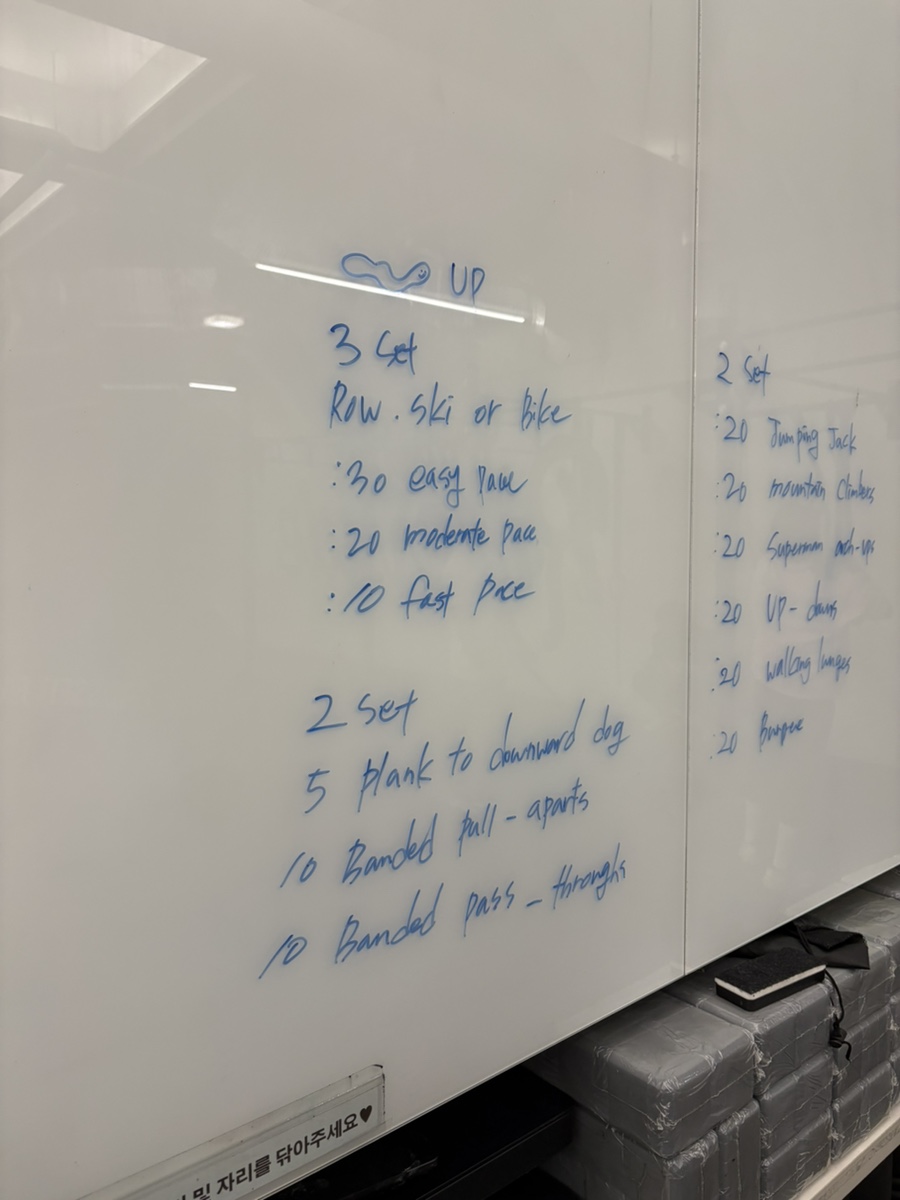 UP
3 Set
Row . Ski or Bike
:30 easy pace
:20 moderate pace
:10 fast pace
2 Set
5 plank to downward dog
10 Banded pull - aparts
10 Banded pass - throughs
2 Set
:20 Jumping Jack
:20 mountain climbers
:20 Superman arch-ups
:20 UP - downs
:20 walking lunges
:20 Burpee
및 자리를 닦아주세요♥